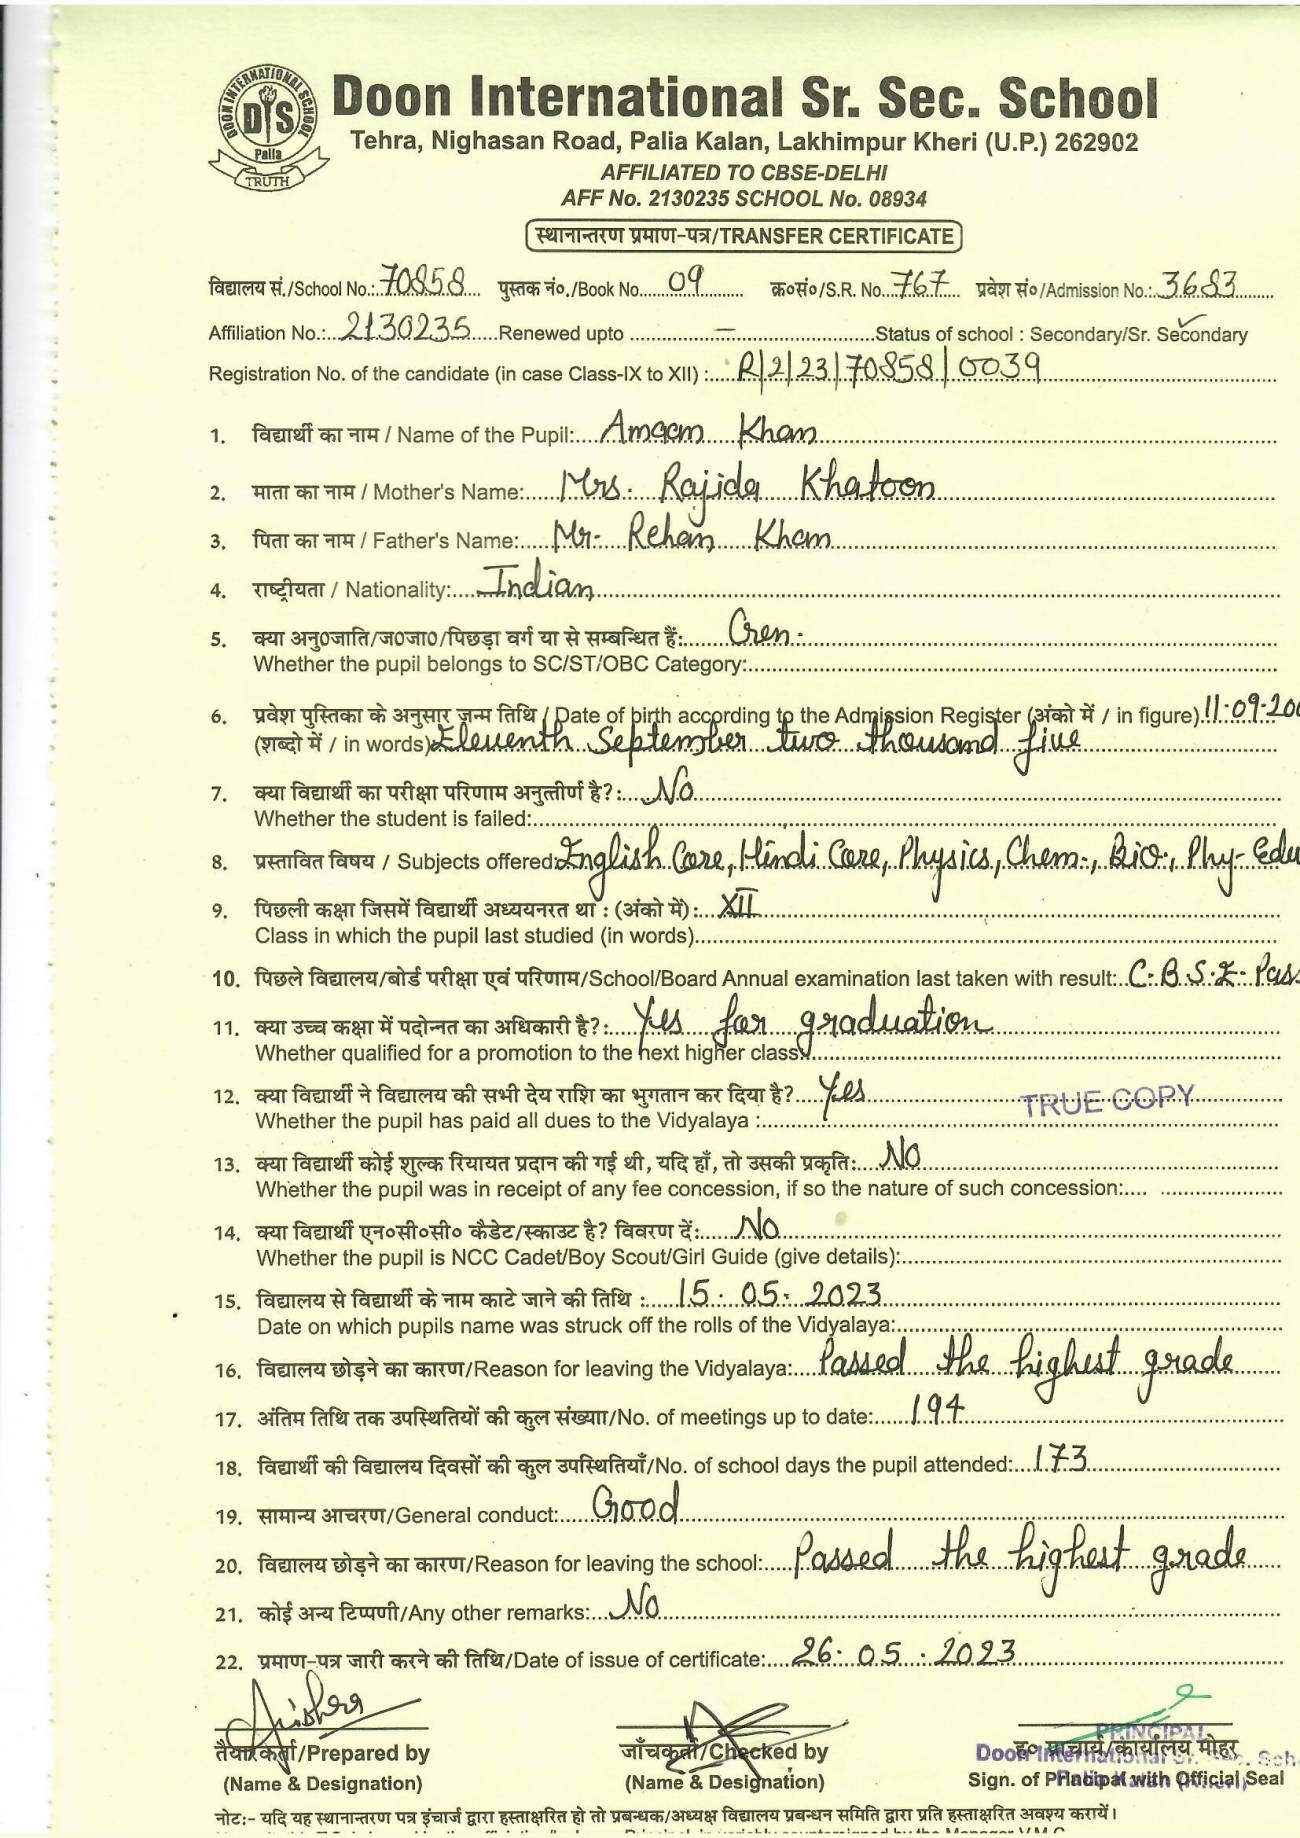 DOON INTERNATIONAL SCHOOL
DIS
Palia
TRUTH
Doon International Sr. Sec. School
Tehra, Nighasan Road, Palia Kalan, Lakhimpur Kheri (U.P.) 262902
AFFILIATED TO CBSE-DELHI
AFF No. 2130235 SCHOOL No. 08934
स्थानान्तरण प्रमाण-पत्र/TRANSFER CERTIFICATE
विद्यालय सं./School No.: 70858 पुस्तक नं०./Book No. 09 क्र०सं०/S.R. No. 767 प्रवेश सं०/Admission No.: 3683
Affiliation No.: 2130235 Renewed upto — Status of school : Secondary/Sr. Secondary
Registration No. of the candidate (in case Class-IX to XII) : R/2/23/70858/0039
1. विद्यार्थी का नाम / Name of the Pupil: Amaan Khan
2. माता का नाम / Mother's Name: Mrs. Rajida Khatoon
3. पिता का नाम / Father's Name: Mr. Rehan Khan
4. राष्ट्रीयता / Nationality: Indian
5. क्या अनु0जाति/ज0जा0/पिछड़ा वर्ग या से सम्बन्धित हैं: Gen.
Whether the pupil belongs to SC/ST/OBC Category:
6. प्रवेश पुस्तिका के अनुसार जन्म तिथि / Date of birth according to the Admission Register (अंको में / in figure). 11-09-200
(शब्दो में / in words) Eleventh September two thousand five
7. क्या विद्यार्थी का परीक्षा परिणाम अनुत्तीर्ण है?: No
Whether the student is failed:
8. प्रस्तावित विषय / Subjects offered: English Core, Hindi Core, Physics, Chem., Bio., Phy-Edu
9. पिछली कक्षा जिसमें विद्यार्थी अध्ययनरत था : (अंको में): XII
Class in which the pupil last studied (in words)
10. पिछले विद्यालय/बोर्ड परीक्षा एवं परिणाम/School/Board Annual examination last taken with result: C.B.S.E-Pass
11. क्या उच्च कक्षा में पदोन्नत का अधिकारी है?: Yes for graduation
Whether qualified for a promotion to the next higher class:
12. क्या विद्यार्थी ने विद्यालय की सभी देय राशि का भुगतान कर दिया है? Yes
TRUE COPY
Whether the pupil has paid all dues to the Vidyalaya :
13. क्या विद्यार्थी कोई शुल्क रियायत प्रदान की गई थी, यदि हाँ, तो उसकी प्रकृति: No
Whether the pupil was in receipt of any fee concession, if so the nature of such concession:
14. क्या विद्यार्थी एन०सी०सी० कैडेट/स्काउट है? विवरण दें: No
Whether the pupil is NCC Cadet/Boy Scout/Girl Guide (give details):
15. विद्यालय से विद्यार्थी के नाम काटे जाने की तिथि : 15.05.2023
Date on which pupils name was struck off the rolls of the Vidyalaya:
16. विद्यालय छोड़ने का कारण/Reason for leaving the Vidyalaya: Passed the highest grade
17. अंतिम तिथि तक उपस्थितियों की कुल संख्या/No. of meetings up to date: 194
18. विद्यार्थी की विद्यालय दिवसों की कुल उपस्थितियाँ/No. of school days the pupil attended: 173
19. सामान्य आचरण/General conduct: Good
20. विद्यालय छोड़ने का कारण/Reason for leaving the school: Passed the highest grade
21. कोई अन्य टिप्पणी/Any other remarks: No
22. प्रमाण-पत्र जारी करने की तिथि/Date of issue of certificate: 26.05.2023
तैयारकर्ता/Prepared by जाँचकर्ता/Checked by ह० प्राचार्य/कार्यालय मोहर
PRINCIPAL
Doon International Sr. Sec. Sch
(Name & Designation) (Name & Designation) Sign. of Principal with Official Seal
नोट:- यदि यह स्थानान्तरण पत्र इंचार्ज द्वारा हस्ताक्षरित हो तो प्रबन्धक/अध्यक्ष विद्यालय प्रबन्धन समिति द्वारा प्रति हस्ताक्षरित अवश्य करायें।